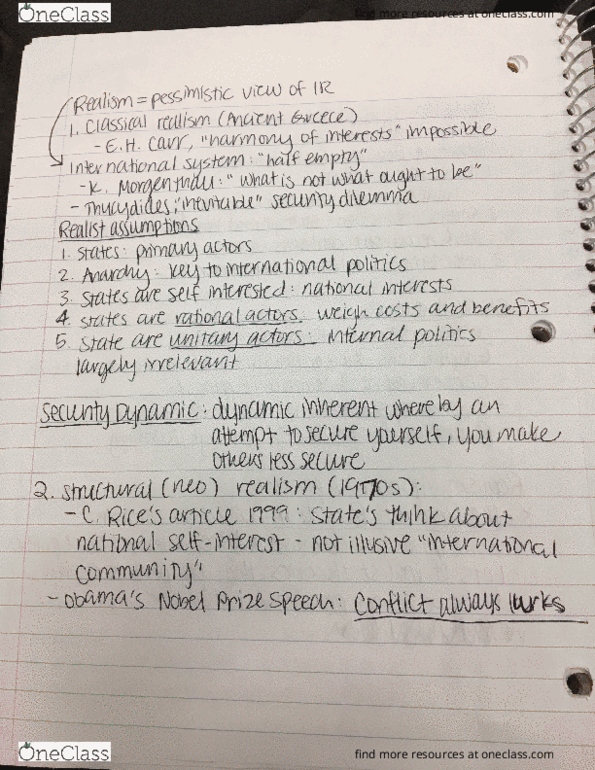 OneClass
find more resources at oneclass.com
Realism = pessimistic view of IR
1. Classical realism (Ancient Greece)
- E.H. Carr, "harmony of interests" impossible
International system: "half empty"
- K. Morgenthau: "what is not what ought to be"
- Thucydides; "inevitable" security dilemma
Realist assumptions
1. States: primary actors
2. Anarchy: key to international politics
3. States are self interested: national interests
4. States are rational actors: weigh costs and benefits
5. State are unitary actors: internal politics
largely irrelevant
Security Dynamic: dynamic inherent whereby an
attempt to secure yourself, you make
others less secure
2. Structural (neo) realism (1970s):
- C. Rice's article 1999: State's think about
national self-interest - not illusive "international
community"
- Obama's Nobel Prize Speech: Conflict always lurks
OneClass
find more resources at oneclass.com